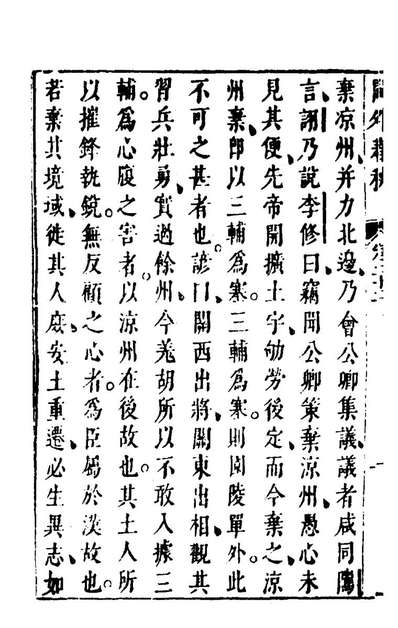 棄凉州并力北邊乃會公卿集議議者咸同
言詡乃說李修曰竊聞公卿策棄凉州愚心未
見其便先帝開擴土宇劬勞後定而今棄之凉
州棄卽以三輔爲塞三輔爲塞則園陵單外此
不可之甚者也諺曰關西出將關東出相觀其
習兵壯勇實過餘州今羌胡所以不敢入據三
輔爲心腹之害者以凉州在後故也其土人所
以摧鋒執銳無反顧之心者爲臣屬於漢故也
若棄其境域徙其人庶安土重遷必生異志如